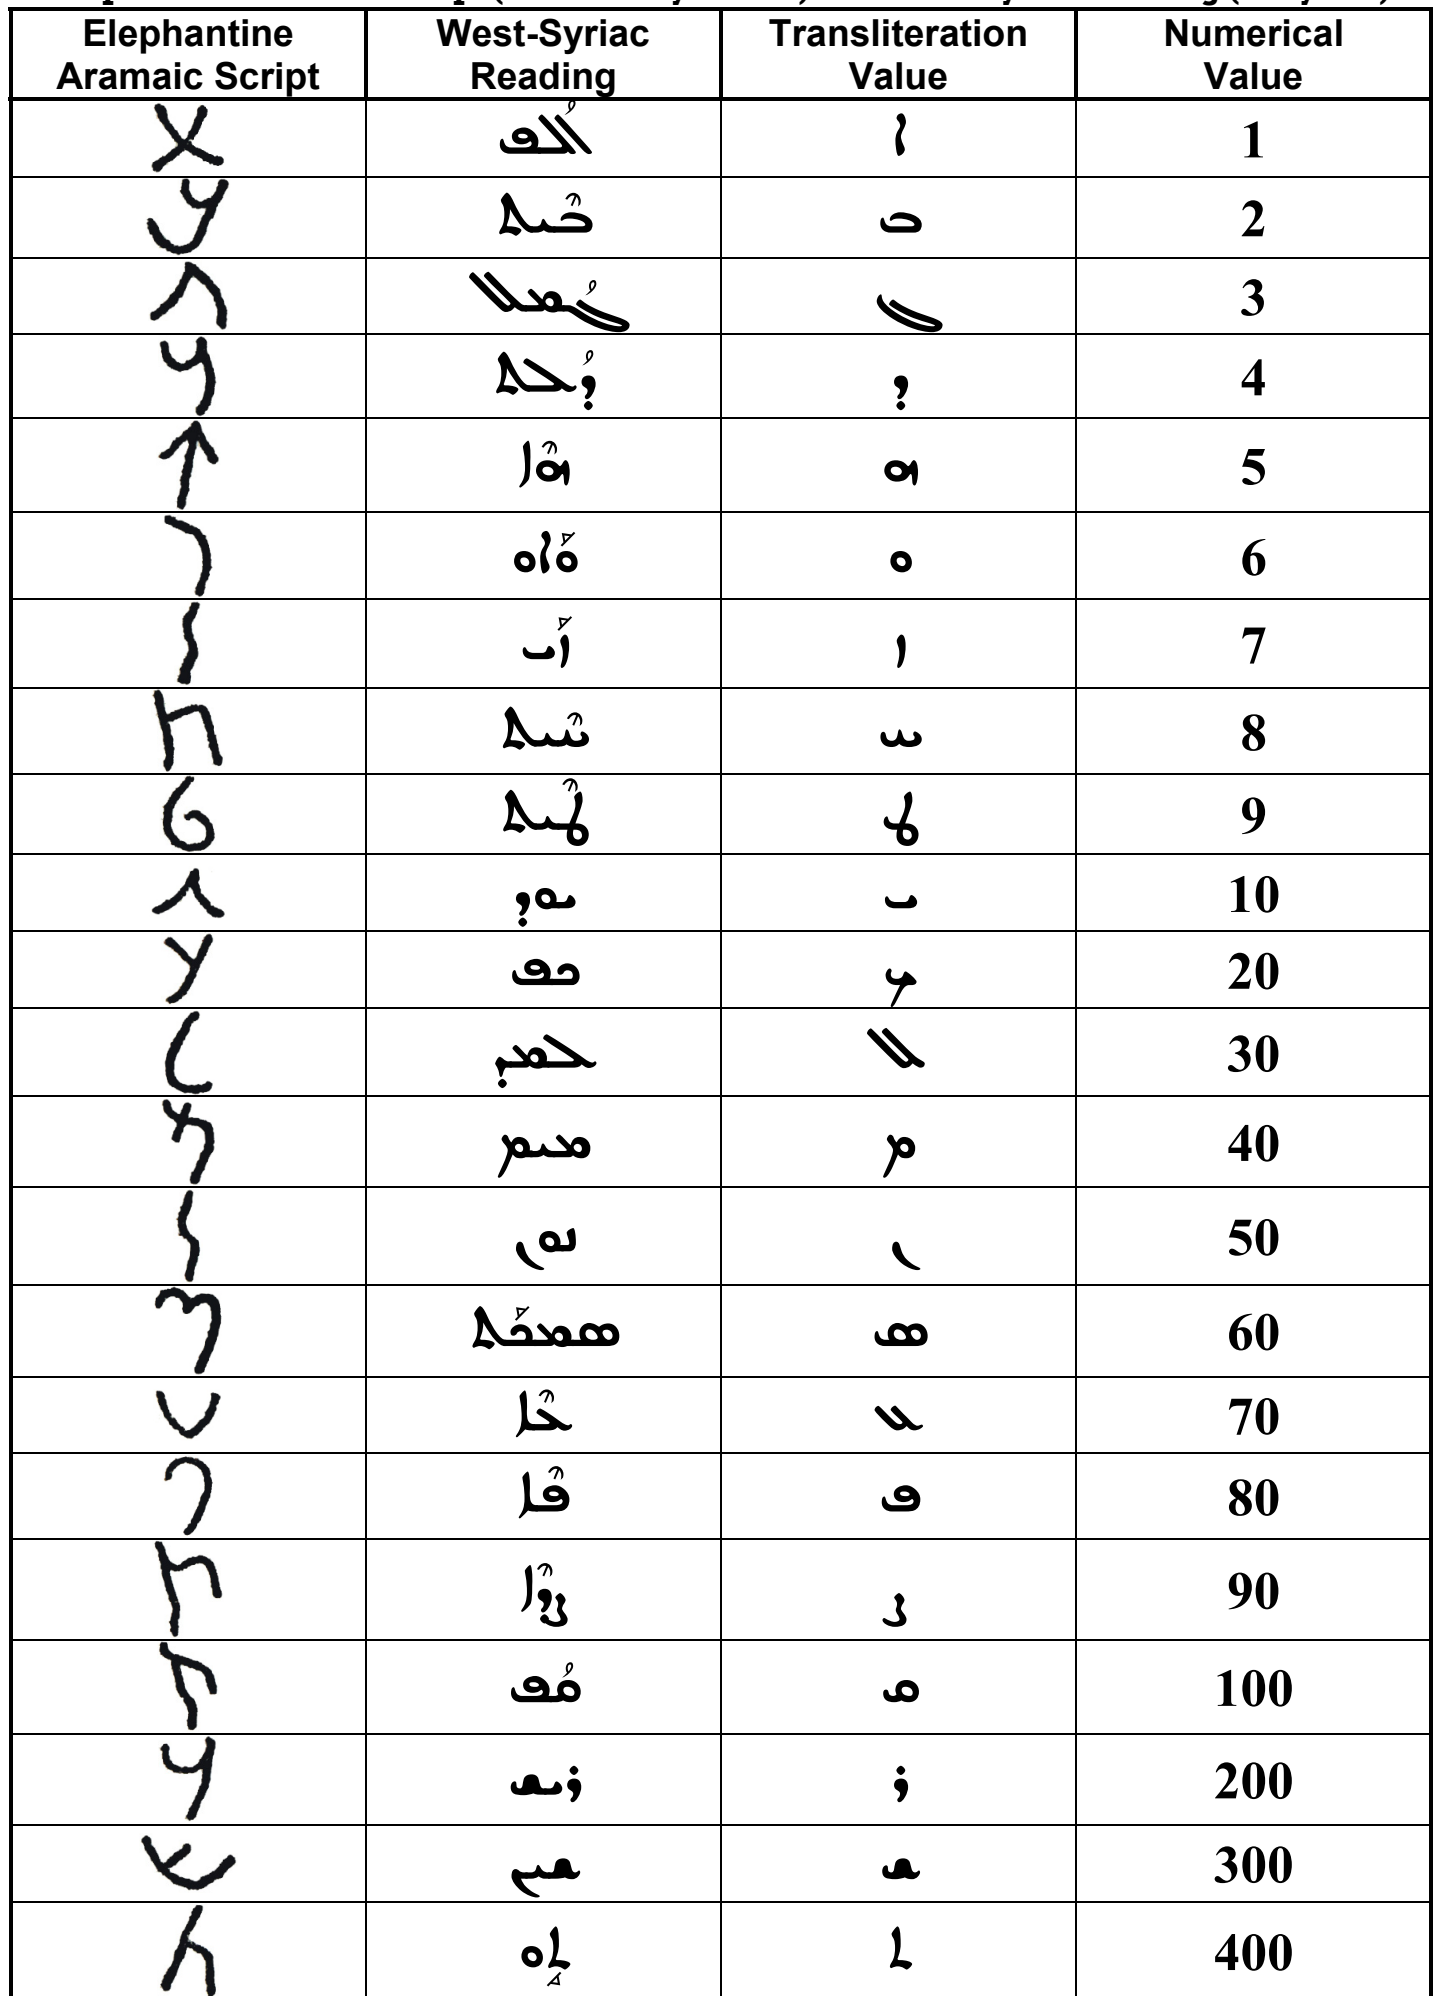 Elephantine Aramaic Script	West-Syriac Reading	Transliteration Value	Numerical Value
𐡀	ܐܰܠܦ	ܐ	1
𐡁	ܒܶܝܬ	ܒ	2
𐡂	ܓܰܡܠ	ܓ	3
𐡃	ܕܰܠܬ	ܕ	4
𐡄	ܗܶܐ	ܗ	5
𐡅	ܘܳܐܘ	ܘ	6
𐡆	ܙܳܝ	ܙ	7
𐡇	ܚܶܝܬ	ܚ	8
𐡈	ܛܶܝܬ	ܛ	9
𐡉	ܝܘܕ	ܝ	10
𐡊	ܟܦ	ܟ	20
𐡋	ܠܡܕ	ܠ	30
𐡌	ܡܝܡ	ܡ	40
𐡍	ܢܘܢ	ܢ	50
𐡎	ܣܡܟܳܬ	ܣ	60
𐡏	ܥܶܐ	ܥ	70
𐡐	ܦܶܐ	ܦ	80
𐡑	ܨܕܶܐ	ܨ	90
𐡒	ܩܰܦ	ܩ	100
𐡓	ܪܝܫ	ܪ	200
𐡔	ܫܝܢ	ܫ	300
𐡕	ܬܴܘ	ܬ	400